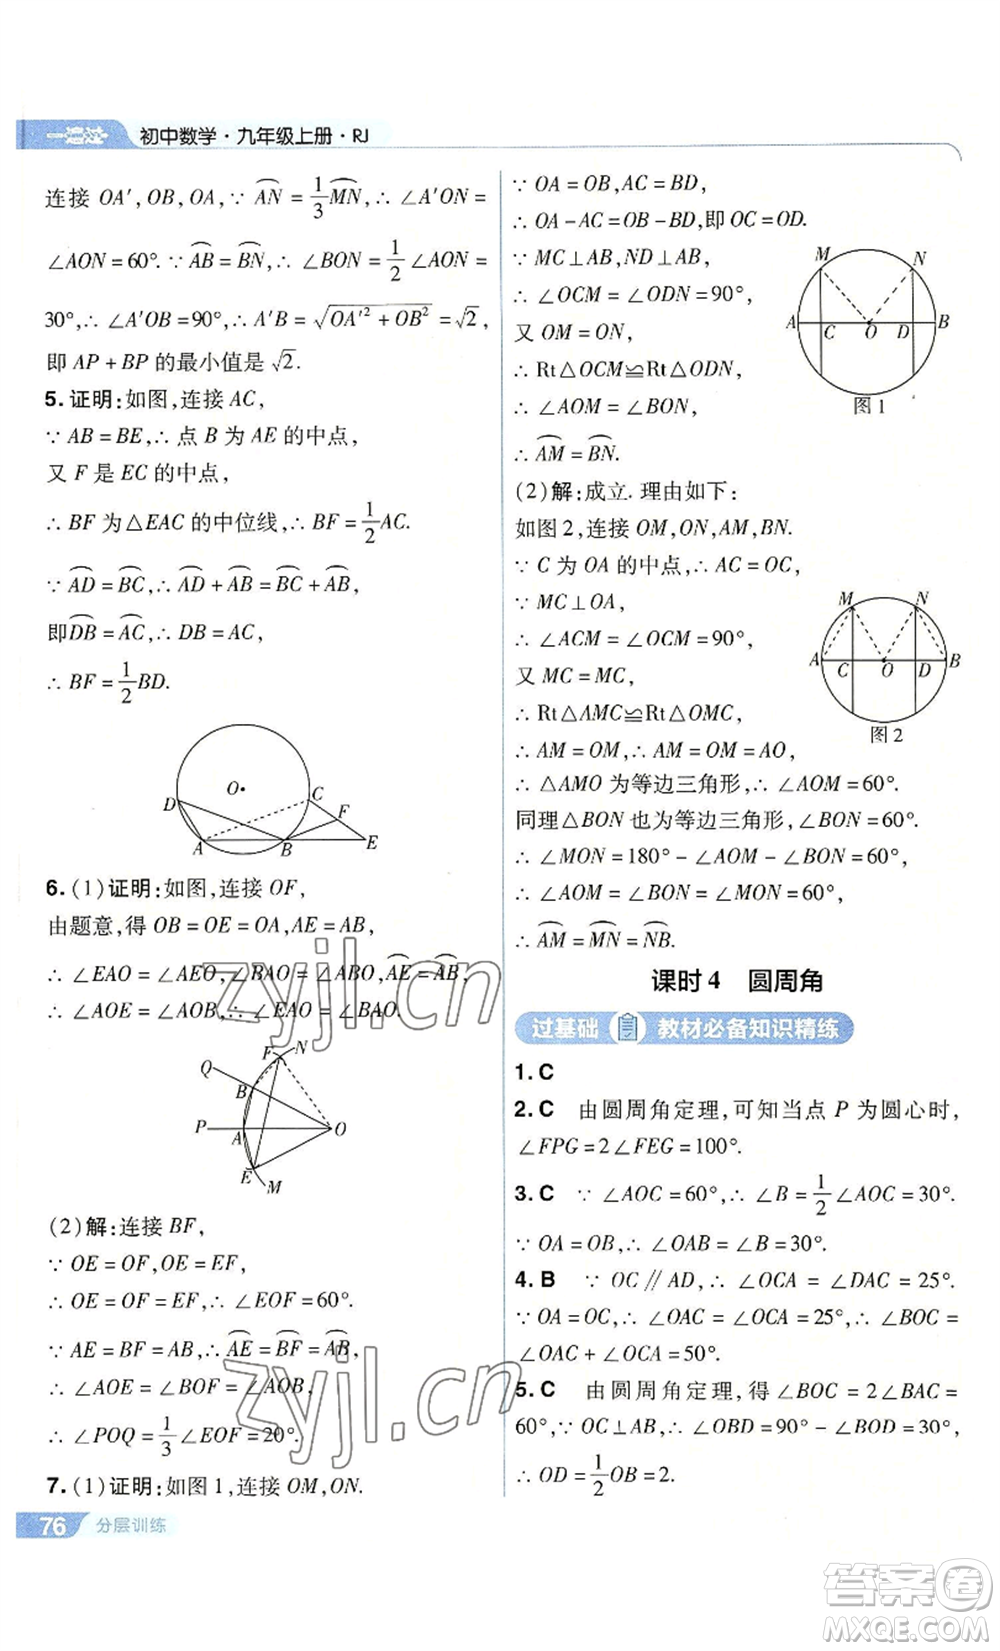 一遍过 初中数学·九年级上册·RJ
连接 OA′,OB,OA,∵ A͡N = 1/3 M͡N,∴ ∠A′ON =
∠AON = 60°. ∵ A͡B = B͡N,∴ ∠BON = 1/2 ∠AON =
30°,∴ ∠A′OB = 90°,∴ A′B = √(OA′² + OB²) = √2,
即 AP + BP 的最小值是 √2.
5. 证明:如图,连接 AC,
∵ AB = BE,∴ 点 B 为 AE 的中点,
又 F 是 EC 的中点,
∴ BF 为 △EAC 的中位线,∴ BF = 1/2 AC.
∵ A͡D = B͡C,∴ A͡D + A͡B = B͡C + A͡B,
即 D͡B = A͡C,∴ DB = AC,
∴ BF = 1/2 BD.
O
D
C
F
A
B
E
6. (1)证明:如图,连接 OF,
由题意,得 OB = OE = OA,AE = AB,
∴ ∠EAO = ∠AEO,∠BAO = ∠ABO,A͡E = A͡B,
∴ ∠AOE = ∠AOB,∴ ∠EAO = ∠BAO.
F
N
Q
B
P
A
O
E
M
(2)解:连接 BF,
∵ OE = OF,OE = EF,
∴ OE = OF = EF,∴ ∠EOF = 60°.
∵ AE = BF = AB,∴ A͡E = B͡F = A͡B,
∴ ∠AOE = ∠BOF = ∠AOB,
∴ ∠POQ = 1/3 ∠EOF = 20°.
7. (1)证明:如图 1,连接 OM,ON.
∵ OA = OB,AC = BD,
∴ OA - AC = OB - BD,即 OC = OD.
∵ MC⊥AB,ND⊥AB,
∴ ∠OCM = ∠ODN = 90°,
又 OM = ON,
∴ Rt△OCM≌Rt△ODN,
∴ ∠AOM = ∠BON,
∴ A͡M = B͡N.
M
N
A
C
O
D
B
图 1
(2)解:成立. 理由如下:
如图 2,连接 OM,ON,AM,BN.
∵ C 为 OA 的中点,∴ AC = OC,
∵ MC⊥OA,
∴ ∠ACM = ∠OCM = 90°,
又 MC = MC,
∴ Rt△AMC≌Rt△OMC,
∴ AM = OM,∴ AM = OM = AO,
∴ △AMO 为等边三角形,∴ ∠AOM = 60°.
同理△BON 也为等边三角形,∴ ∠BON = 60°,
∴ ∠MON = 180° - ∠AOM - ∠BON = 60°,
∴ ∠AOM = ∠BON = ∠MON = 60°,
∴ A͡M = M͡N = N͡B.
M
N
A
C
O
D
B
图 2
课时 4 圆周角
过基础 教材必备知识精练
1. C
2. C 由圆周角定理,可知当点 P 为圆心时,
∠FPG = 2∠FEG = 100°.
3. C ∵ ∠AOC = 60°,∴ ∠B = 1/2 ∠AOC = 30°.
∵ OA = OB,∴ ∠OAB = ∠B = 30°.
4. B ∵ OC∥AD,∴ ∠OCA = ∠DAC = 25°.
∵ OA = OC,∴ ∠OAC = ∠OCA = 25°,∴ ∠BOC =
∠OAC + ∠OCA = 50°.
5. C 由圆周角定理,得 ∠BOC = 2∠BAC =
60°,∵ OC⊥AB,∴ ∠OBD = 90° - ∠BOD = 30°,
∴ OD = 1/2 OB = 2.
76 分层训练
zyjl.cn
zyjl.cn
答案圈
MXQE.COM